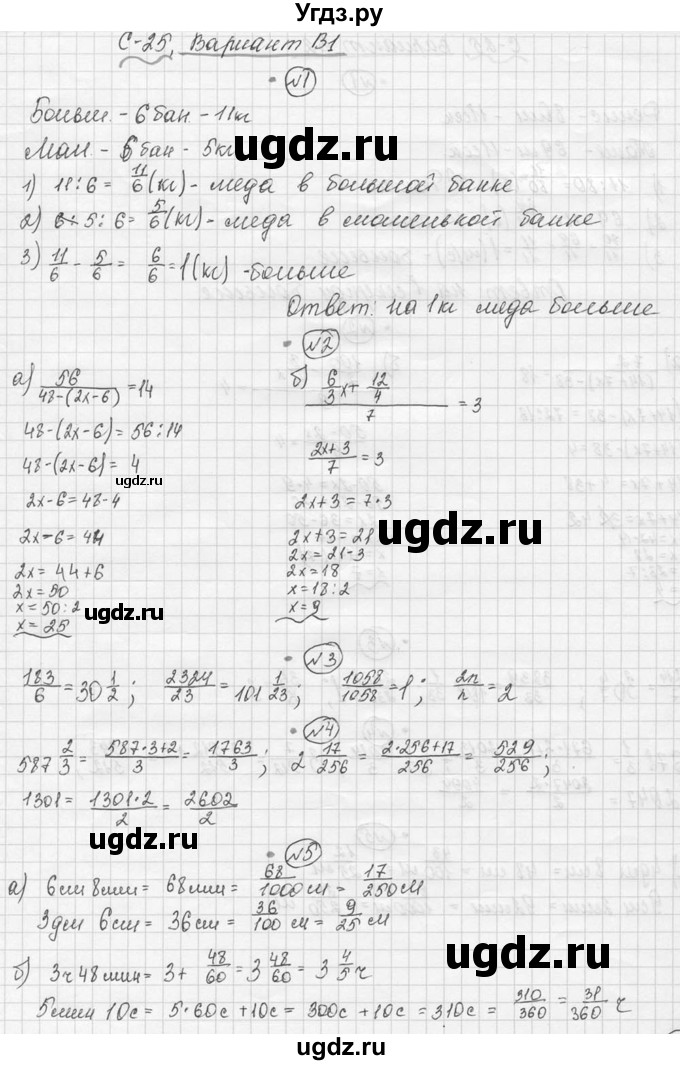 Угдз.ру
С-25, Вариант В1
№1
Больш. - 6 бан. - 11кг
Мал. - 6 бан - 5кг
1) 11:6 = 11/6 (кг) - меда в большой банке
2) 5:6 = 5/6 (кг) - меда в маленькой банке
3) 11/6 - 5/6 = 6/6 = 1 (кг) - больше
Ответ: на 1кг меда больше
№2
а) 56/(48-(2x-6)) = 14
48-(2x-6) = 56:14
48-(2x-6) = 4
2x-6 = 48-4
2x-6 = 44
2x = 44+6
2x = 50
x = 50:2
x = 25
б) (6/3 x + 12/4)/7 = 3
(2x+3)/7 = 3
2x+3 = 7·3
2x+3 = 21
2x = 21-3
2x = 18
x = 18:2
x = 9
№3
183/6 = 30 1/2; 2324/23 = 101 1/23; 1058/1058 = 1; 2n/n = 2
№4
587 2/3 = (587·3+2)/3 = 1763/3; 2 17/256 = (2·256+17)/256 = 529/256;
1301 = (1301·2)/2 = 2602/2
№5
а) 6см 8мм = 68мм = 68/1000 м = 17/250 м
3дм 6см = 36см = 36/100 м = 9/25 м
б) 3ч 48мин = 3 + 48/60 = 3 48/60 = 3 4/5 ч
5мин 10с = 5·60с + 10с = 300с + 10с = 310с = 310/360 = 31/360 ч
ugdz.ru
ugdz.ru
ugdz.ru
ugdz.ru
ugdz.ru
ugdz.ru
ugdz.ru
ugdz.ru
ugdz.ru